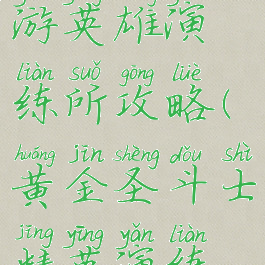 游英雄演
liàn suǒ gōng lüè
练所攻略(
huáng jīn shèng dǒu shì
黄金圣斗士
jīng yīng yǎn liàn
精英演练